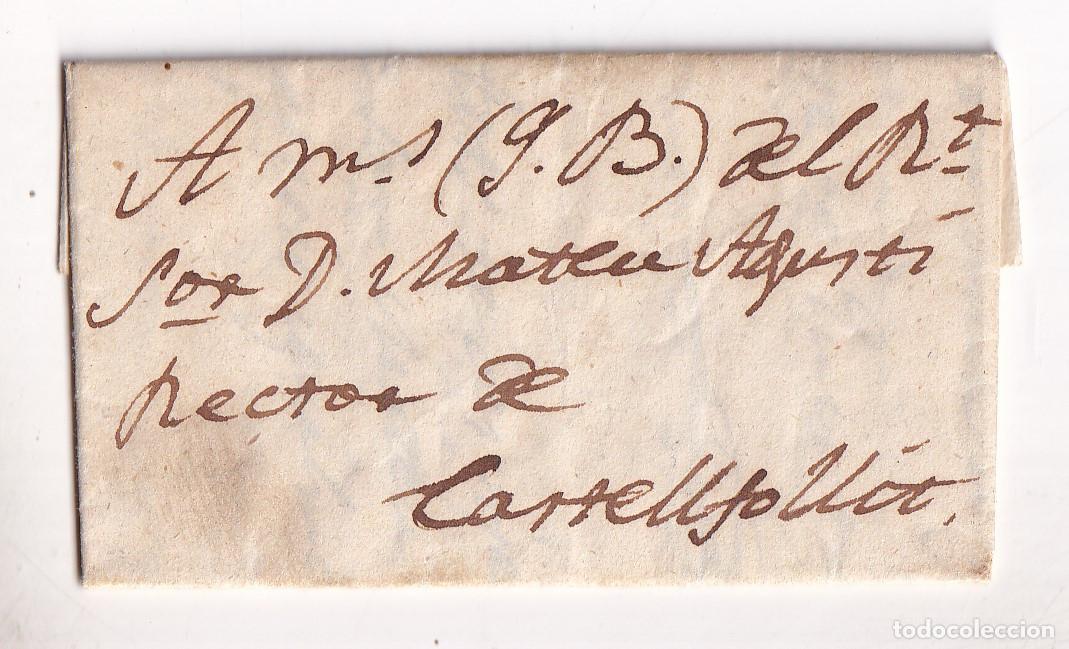 A ms. (G. B.) del Rt.
Sor D. Mateu Agusti
Rector de
Castellfollit.
todocoleccion